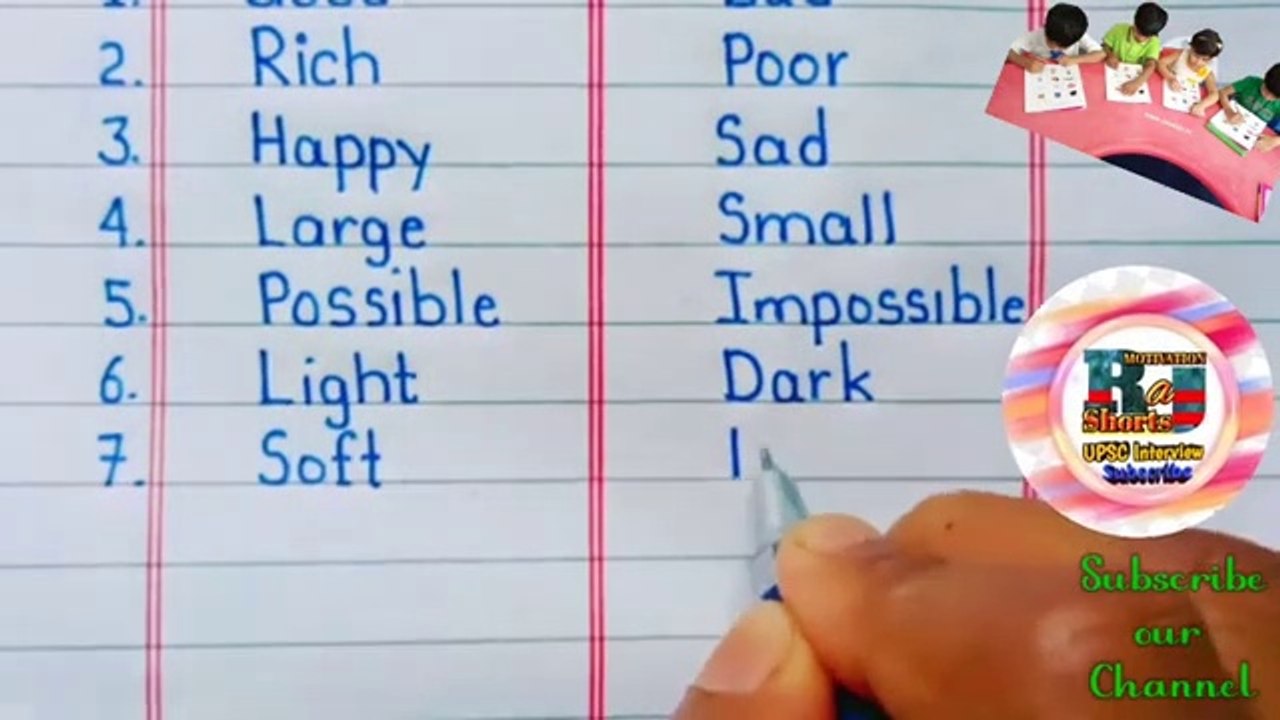 1. Good Bad
2. Rich Poor
3. Happy Sad
4. Large Small
5. Possible Impossible
6. Light Dark
7. Soft
MOTIVATION
R@J
Shorts
UPSC Interview
Subscribe
Subscribe
our
Channel